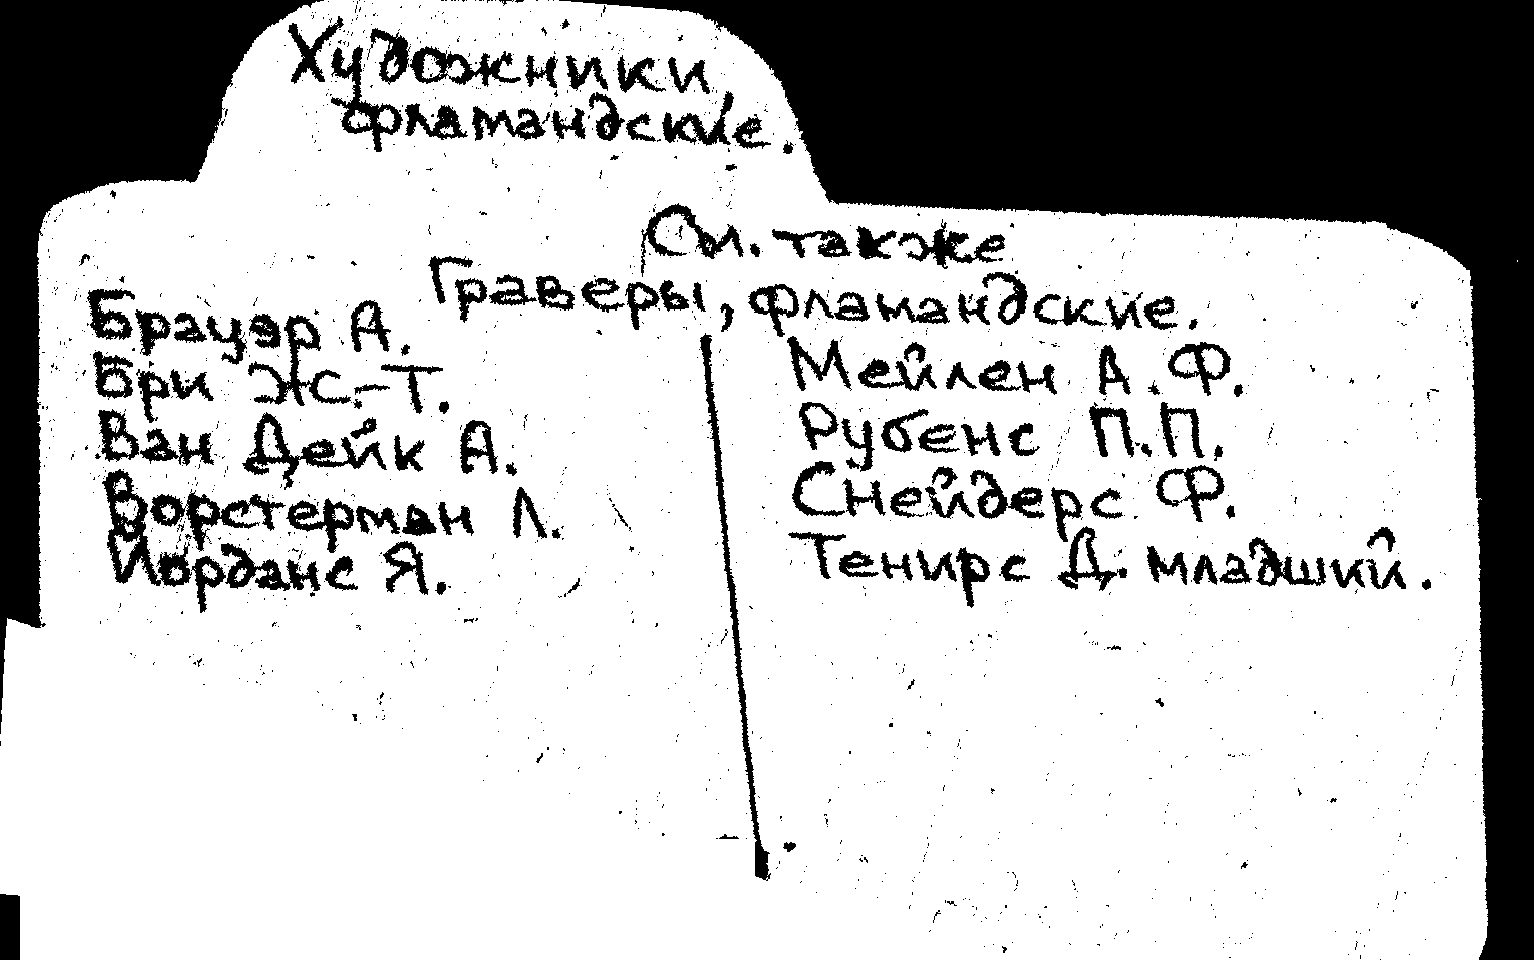 Художники,
фламандские.
См. также
Граверы, фламандские.
Брауэр А.
Бри Ж.-Т.
Ван Дейк А.
Ворстерман Л.
Йорданс Я.
Мейлен А.Ф.
Рубенс П.П.
Снейдерс Ф.
Тенирс Д. младший.